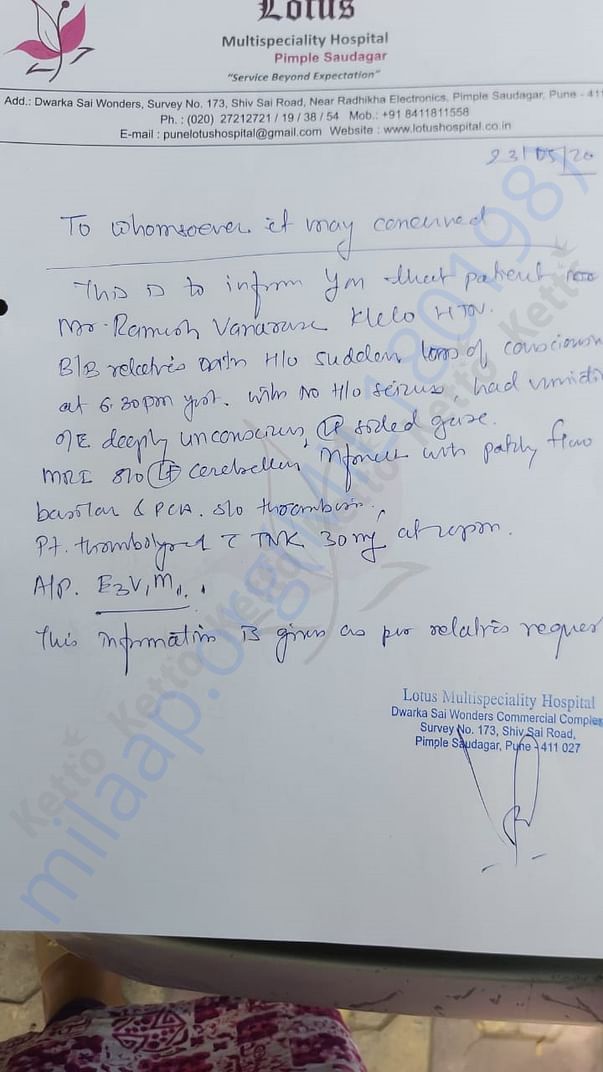 Lotus
Multispeciality Hospital
Pimple Saudagar
"Service Beyond Expectation"
Add.: Dwarka Sai Wonders, Survey No. 173, Shiv Sai Road, Near Radhikha Electronics, Pimple Saudagar, Pune - 411
Ph. : (020) 27212721 / 19 / 38 / 54 Mob.: +91 8411811558
E-mail : punelotushospital@gmail.com Website : www.lotushospital.co.in
23/05/20
To whomsoever it may concerned
This is to inform you that patient
Mr. Ramesh Vanarase K/c/o HTN.
B/B relatives H/o sudden loss of
at 6.30pm with No H/o had
O/E deeply unconscious, sided gaze.
MRI S/o cerebellar infarct with patchy flow
basilar & PCA. S/o
Pt. thrombolysed c TNK 30 mg at
A/P. E3V1M1.
This information is given as per relatives request
Lotus Multispeciality Hospital
Dwarka Sai Wonders Commercial Complex
Survey No. 173, Shiv Sai Road,
Pimple Saudagar, Pune - 411 027
Ketto Ketto Ketto Ketto Ketto Ketto
milaap.org